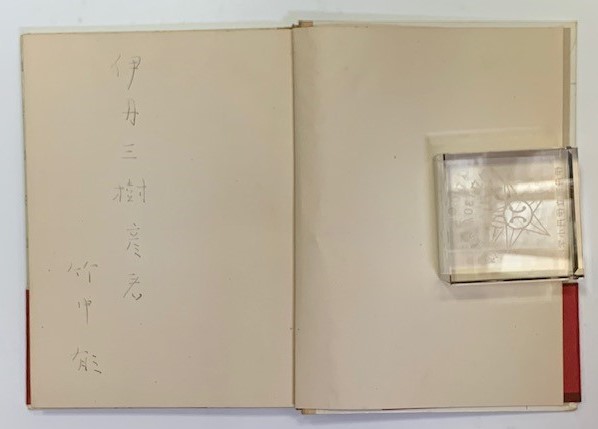 伊丹三樹彦君
竹中郁